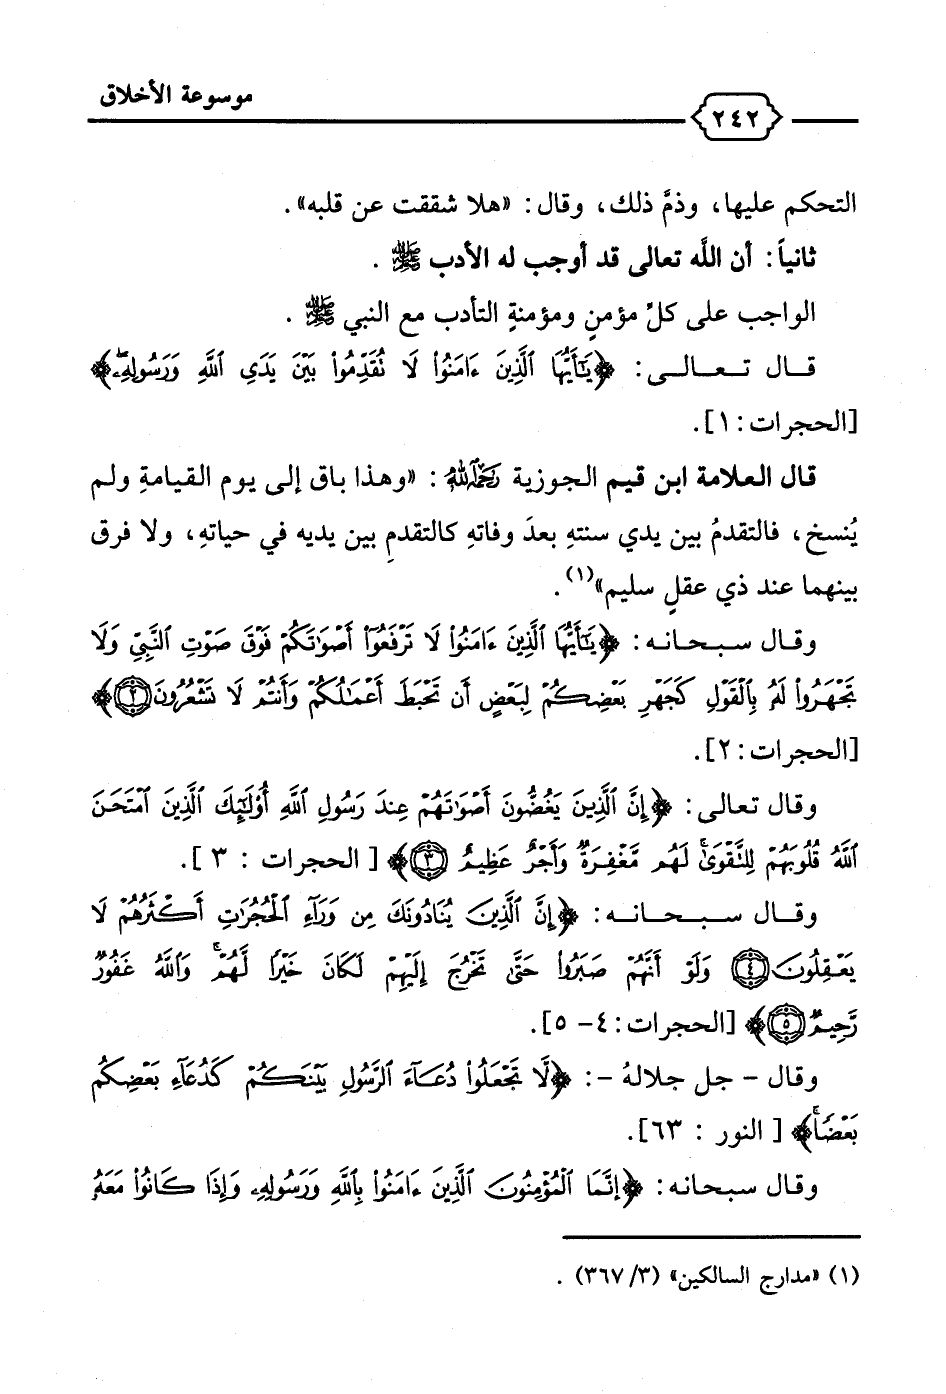 موسوعة الأخلاق
٢٤٢
التحكم عليها، وذمَّ ذلك، وقال: «هلا شققت عن قلبه».
ثانياً: أن اللَّه تعالى قد أوجب له الأدب ﷺ .
الواجب على كلِّ مؤمنٍ ومؤمنةٍ التأدب مع النبي ﷺ .
قال تعالى: ﴿يَٰٓأَيُّهَا ٱلَّذِينَ ءَامَنُوا۟ لَا تُقَدِّمُوا۟ بَيْنَ يَدَىِ ٱللَّهِ وَرَسُولِهِۦ ۖ﴾
[الحجرات: ١].
قال العلامة ابن قيم الجوزية رَحِمَهُ اللَّهُ : «وهذا باق إلى يوم القيامةِ ولم
يُنسخ، فالتقدمُ بين يدي سنتهِ بعدَ وفاتهِ كالتقدمِ بين يديه في حياتهِ، ولا فرق
بينهما عند ذي عقلٍ سليم»(١).
وقال سبحانه: ﴿يَٰٓأَيُّهَا ٱلَّذِينَ ءَامَنُوا۟ لَا تَرْفَعُوٓا۟ أَصْوَٰتَكُمْ فَوْقَ صَوْتِ ٱلنَّبِىِّ وَلَا
تَجْهَرُوا۟ لَهُۥ بِٱلْقَوْلِ كَجَهْرِ بَعْضِكُمْ لِبَعْضٍ أَن تَحْبَطَ أَعْمَٰلُكُمْ وَأَنتُمْ لَا تَشْعُرُونَ ٢﴾
[الحجرات: ٢].
وقال تعالى: ﴿إِنَّ ٱلَّذِينَ يَغُضُّونَ أَصْوَٰتَهُمْ عِندَ رَسُولِ ٱللَّهِ أُو۟لَٰٓئِكَ ٱلَّذِينَ ٱمْتَحَنَ
ٱللَّهُ قُلُوبَهُمْ لِلتَّقْوَىٰ ۚ لَهُم مَّغْفِرَةٌ وَأَجْرٌ عَظِيمٌ ٣﴾ [ الحجرات : ٣ ].
وقال سبحانه: ﴿إِنَّ ٱلَّذِينَ يُنَادُونَكَ مِن وَرَآءِ ٱلْحُجُرَٰتِ أَكْثَرُهُمْ لَا
يَعْقِلُونَ ٤ وَلَوْ أَنَّهُمْ صَبَرُوا۟ حَتَّىٰ تَخْرُجَ إِلَيْهِمْ لَكَانَ خَيْرًا لَّهُمْ ۚ وَٱللَّهُ غَفُورٌ
رَّحِيمٌ ٥﴾ [الحجرات: ٤- ٥].
وقال - جل جلالهُ -: ﴿لَّا تَجْعَلُوا۟ دُعَآءَ ٱلرَّسُولِ بَيْنَكُمْ كَدُعَآءِ بَعْضِكُم
بَعْضًا ۚ﴾ [ النور : ٦٣].
وقال سبحانه: ﴿إِنَّمَا ٱلْمُؤْمِنُونَ ٱلَّذِينَ ءَامَنُوا۟ بِٱللَّهِ وَرَسُولِهِۦ وَإِذَا كَانُوا۟ مَعَهُۥ
(١) «مدارج السالكين» (٣/ ٣٦٧) .